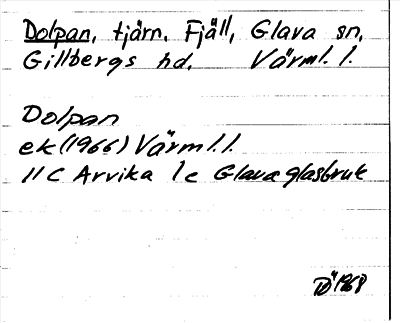 Dolpan, tjärn, Fjäll, Glava sn,
Gillbergs hd. Värml. l.
Dolpan
ek (1966) Värml. l.
11 C Arvika 1 c Glava glasbruk
1968